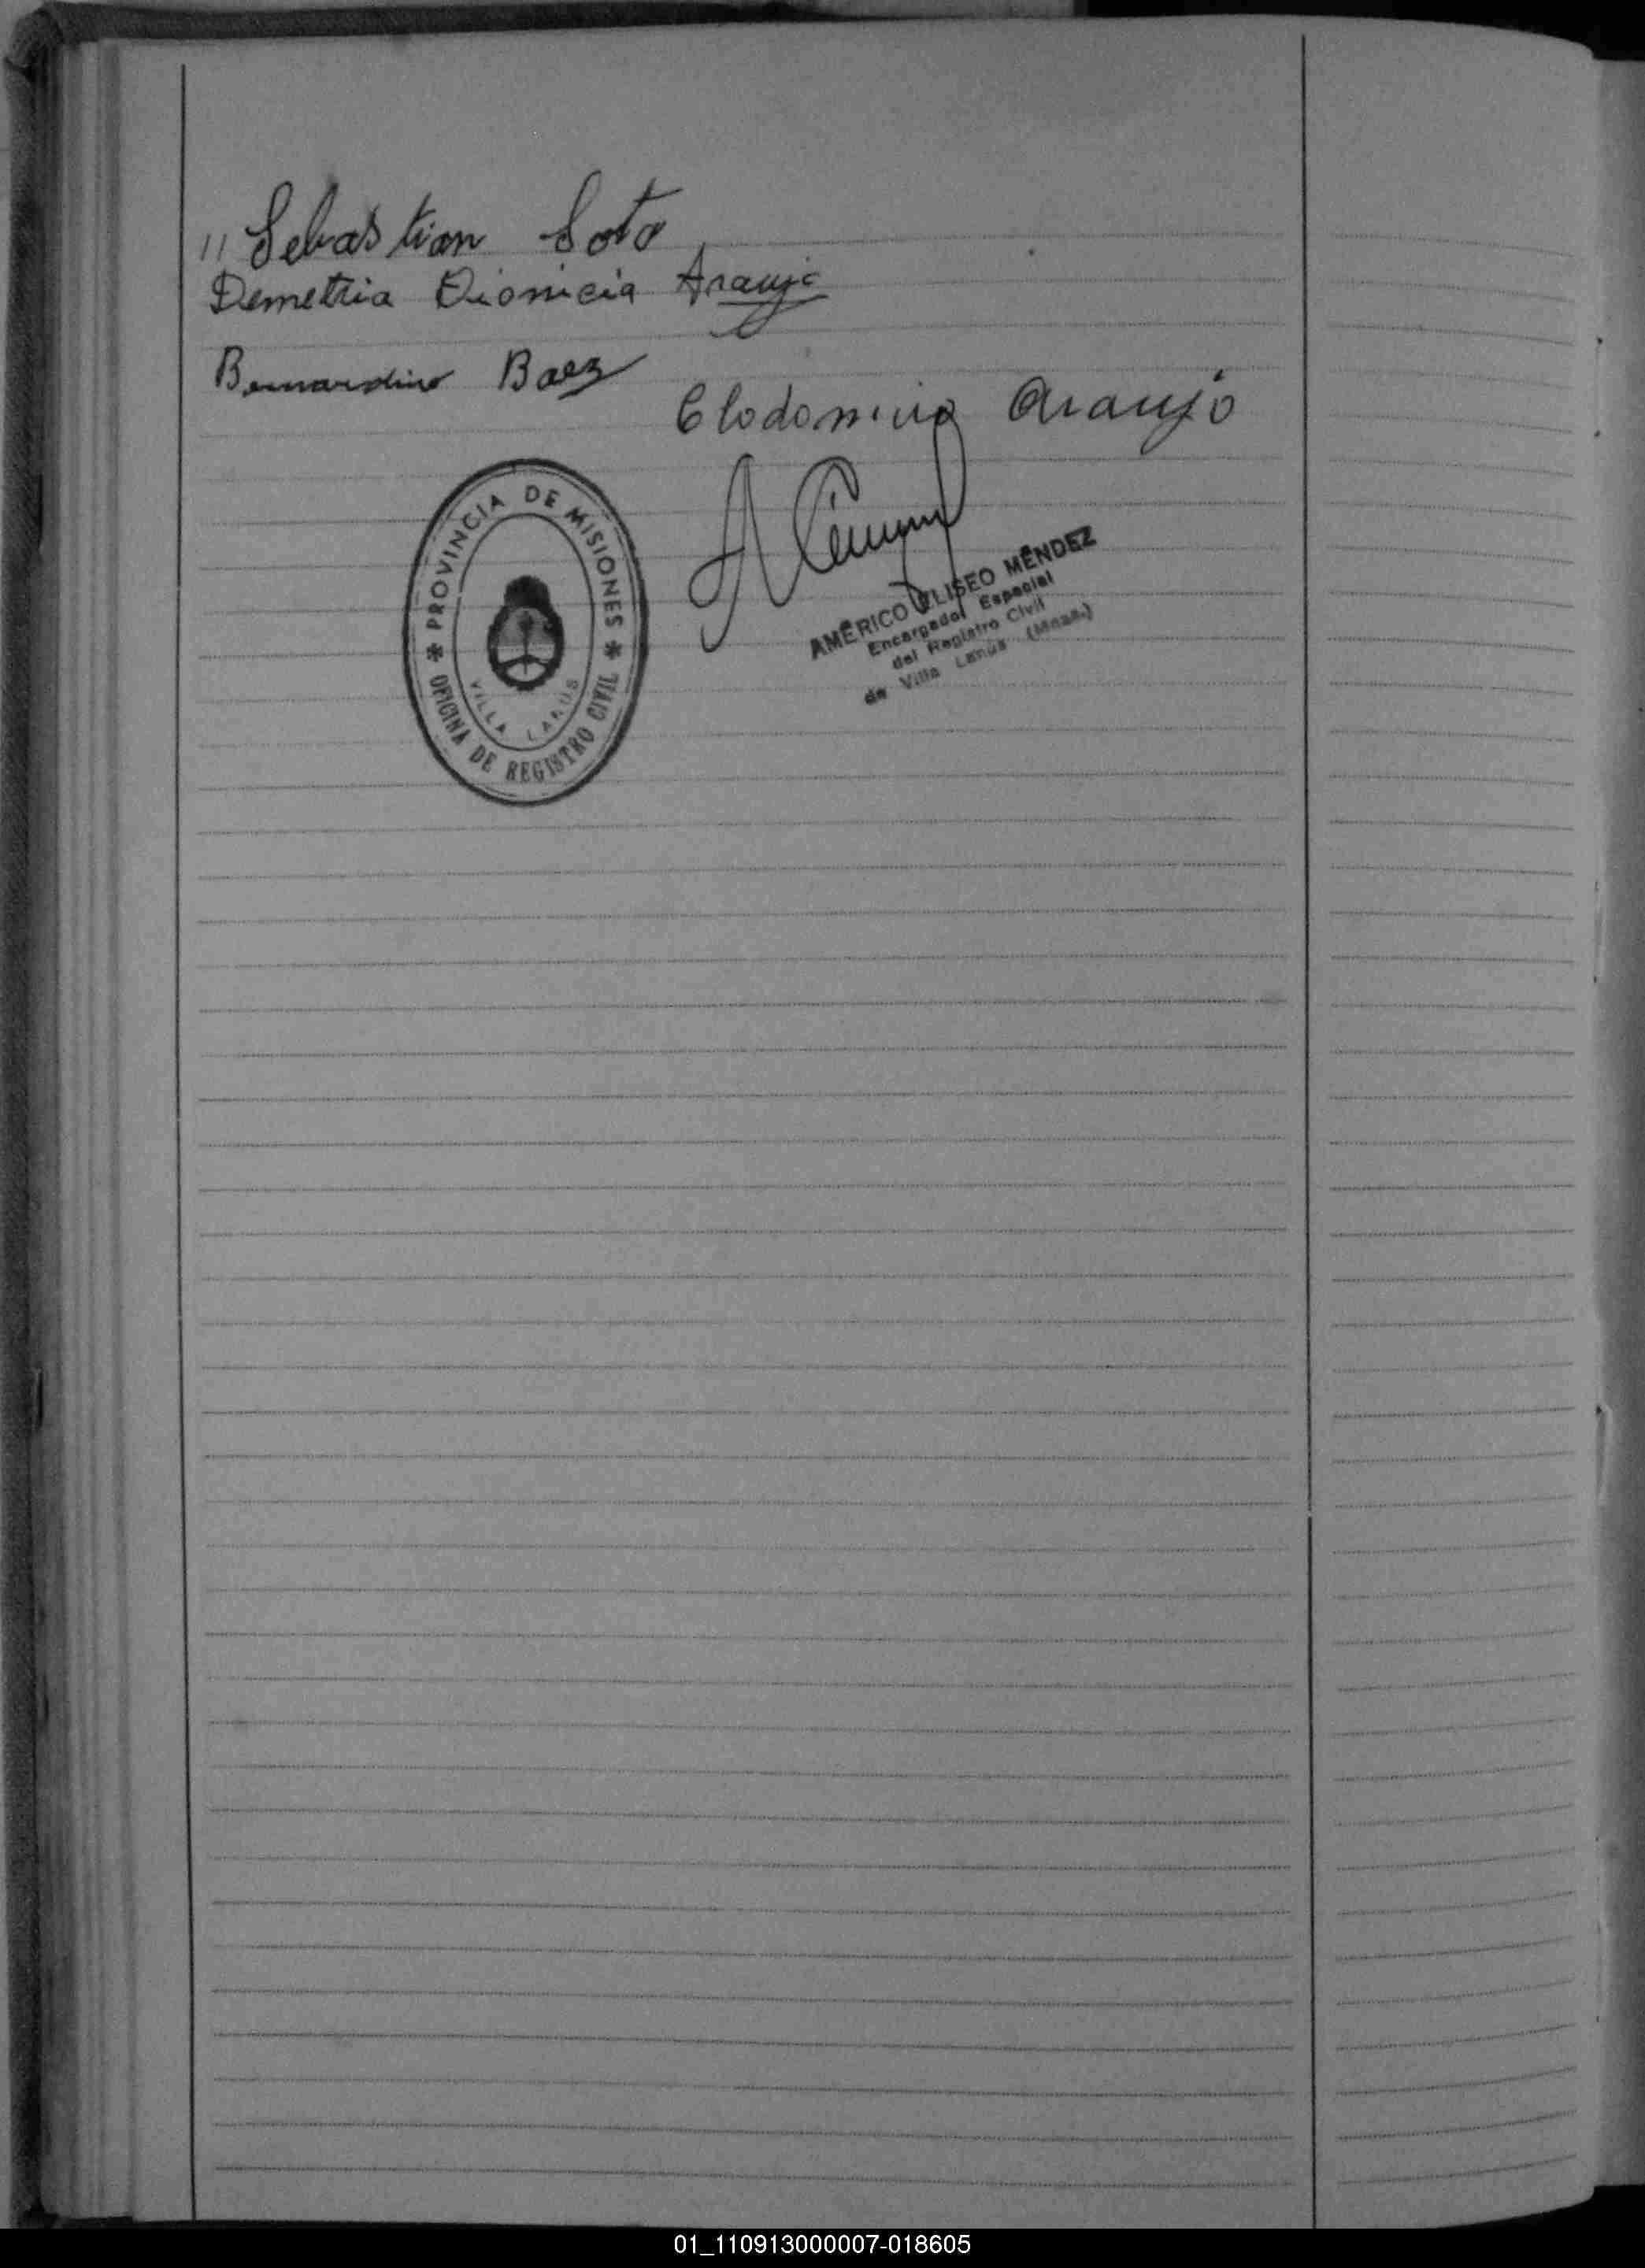 " Sebastian Soto
Demetria Dionicia Araujo
Bernardino Baez
Clodomiro Araujo
* PROVINCIA DE MISIONES *
OFICINA DE REGISTRO CIVIL
VILLA LANUS
AMÉRICO ELISEO MÉNDEZ
Encargado Especial
del Registro Civil
de Villa Lanús (Mnes.)
01_110913000007-018605